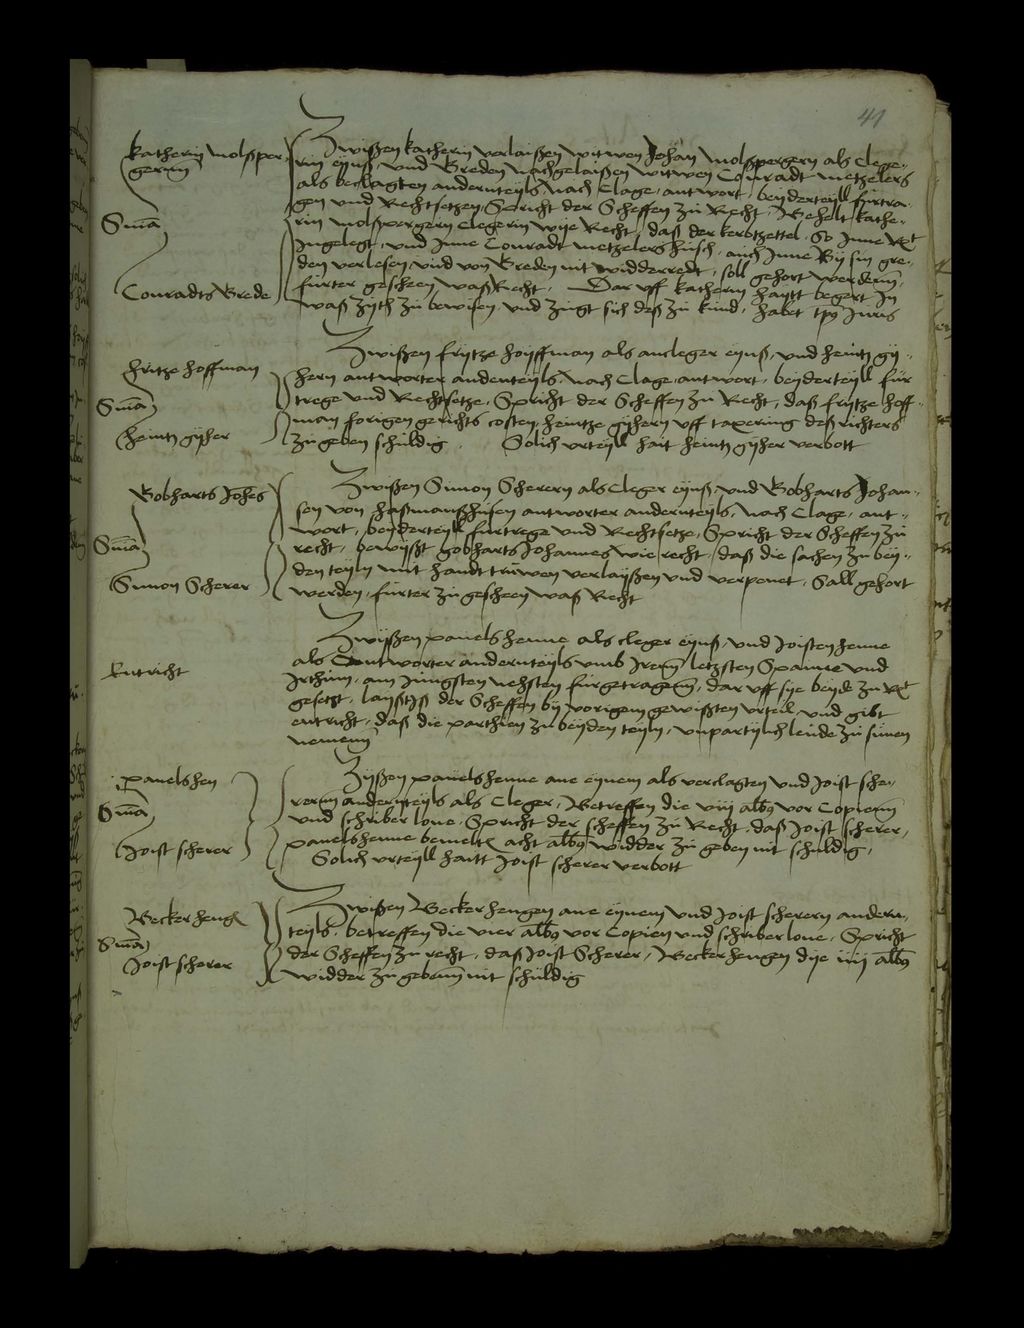 41
katherin molsper
gerynn
Sma
Conradts Brede
Zwißen katherin verlaißen witwen Johan molspergern als clege-
rin eynß, und Breden nachgelaißen witwen Conradt metzelers
als beclagten andernteyls, nach clage, antwort, beyderteyll furtra-
gen und Rechtsetzen, Spricht der Scheffen zu Recht, Behelt kathe-
rin molspergern clegerin wije Recht, daß der kerbtzettel, So Inne Rt
Ingelegt, und Inne Conradt metzelers huisch, auch Inne By sin gre-
den verlesen, und von Breden nit widderredt, soll gehort werdenn,
furter gescheen waß Recht, Dar uff katherin haytt begert In
waß zyth zu bewisen, und zugt sich deß zu kind, habet tps Juris
fritze hoffman
Sma
heintz gyher
Zwißen frytze hoyffman als ancleger eynß, und heintz gy-
hern antworter anderteyls, nach clage, antwort, beyderteyll fur
trege und Rechtsetze, Spricht der Scheffen zu Recht, daß frytze hoff-
man forigen gerichts costen, heintze gyhern uff taxering deß richters
zu geben schuldig. Solich urteyll hait heintz gyher verbott
Bobharts Johes
Sma
Simon Scherer
Zwißen Simon Scherern als cleger eynß, und Bobharts Johan-
sen von hastmanßhusen antworter andernteyls, nach clage, ant-
wort, beyderteyll furtrege und Rechtsetze, Spricht der Scheffen zu
recht, bewyßt gobharts Johannes wie recht, daß die sachen zu bey-
den teyln mit handt truwen verlayßen und verpenet, Sall gehort
werden, furter zu gescheen waß Recht
Entricht
Zwyßen pauels henne als cleger eynß, und Joisten henne
als antworter andernteyls umb Irenn letzsten Spanne und
Irthum, am Jungsten nehsten furgetragenn, dar uff sye beyde zu Rt
gesetzt, layßt Iß der Scheffen by vorigem gewißten urteil, und gibt
entricht, daß die parthien zu beyden teyln, unpartylich leude zu sunen
nemenn
pauels hen
Sma
Joist scherer
Zyßen pauels henne ane eynem als verclagten und Joist sche-
rernn andernteyls als cleger, Betreffen die viij albus vor Copienn
und schriber lone, Spricht der scheffen zu Recht, daß Joist scherer,
pauels henne bemelt acht albus widder zu geben nit schuldig,
Solich urteyll haitt Joist scherer verbott
Becker heng
Sma
Joist scherer
Zwißen Becker hengen ane eynem und Joist scherern andern-
teyls, betreffen die vier albus vor Copien und schriber lone, Spricht
der Scheffen zu recht, daß Joist Scherer, Becker hengen dye iiij albus
widder zu gebenn nit schuldig